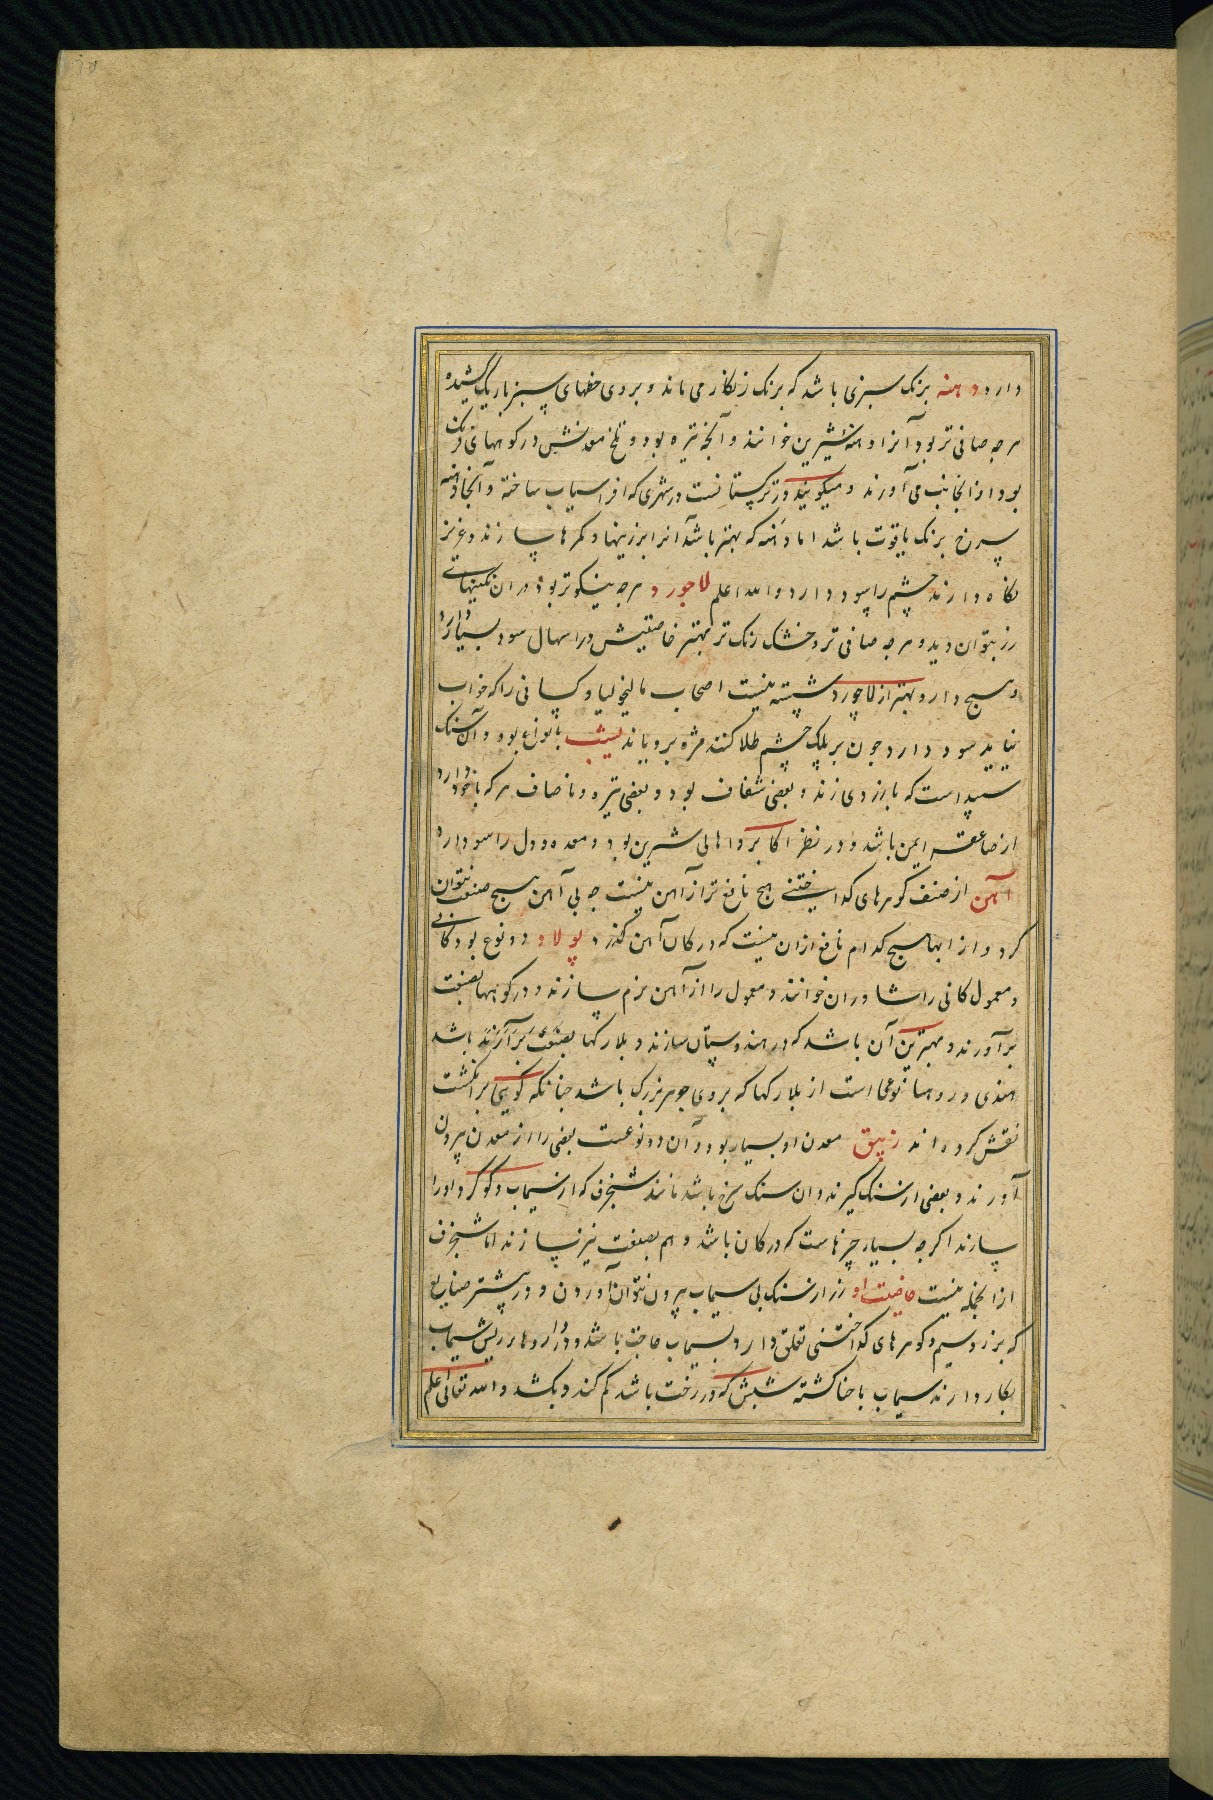 دارد دهنه برنک سبزی باشد که برنک زنکار می ماند و بروی خطهای سبز باریک کشیده
هرجه صافی تر بود آنرا دهنهٔ شیرین خوانند و آنجه تیره بود و تلخ معدنش در کوههای فرنک
بود از انجانب می آورند و میکویند در ترکستانست در شهری که افراسیاب ساخته و آنجا دهنه
سرخ برنک یاقوت باشد اما دهنه که بهتر باشد آنرا بر زینها و کمرها سازند و عزیز
نکاه دارند چشم را سود دارد والله اعلم لاجورد هرجه نیکوتر بود در ان نکینهای
زر بتوان دید و هرجه صافی تر و خشک رنک تر بهتر خاصیتش در اسهال سود بسیار دارد
و هیج دارو بهتر از لاجورد شسته نیست اصحاب مالیخولیا و کسانی را که خواب
نیاید سود دارد جون بر پلک چشم طلا کنند مژه برویاند یشب بانواع بود و آن سنک
سپید است که بازردی زند و بعضی شفاف بود و بعضی تیره و ناصاف هرکه با خود دارد
از صاعقه ایمن باشد و در نظر اکابر و اهالی شیرین بود و معده و دل را سود دارد
آهن از صنف کوهرهای کداختنی هیج نافع تر از آهن نیست جه بی آهن هیج صنعت نتوان
کرد و از انها هیج کدام نافع ازان نیست که در کان آهن کذرد پولاد دو نوع بود کانی
و معمول کانی را شاوران خوانند و معمول را از آهن نرم سازند و در کوهها بصنعت
برآورند و بهترین آن باشد که در هندوستان سازند و بلارکها بصنعت برآرند باشد
هندی و روهینا نوعی است از بلارکها که بروی جوهر بزرک باشد جنانکه کویی بر انکشت
نقش کرده اند زیبق معدن او بسیار بود و آن دو نوعست بعضی را از معدن بیرون
آورند و بعضی از سنک کیرند و ان سنک سرخ باشد مانند شنجرف که از سیماب و کوکرد او را
سازند اکرجه بسیار چیزهاست که در کان باشد و هم بصنعت نیز سازند اما شنجرف
ازانجمله نیست خاصیت او زر از سنک بی سیماب بیرون نتوان آوردن و در بیشتر صنایع
که بزر و سیم و کوهرهای کداختنی تعلق دارد بسیماب حاجت باشد و در داروها ریش سیماب
بکار دارند سیماب با حنا کشته شپش که در رخت باشد کم کند و بکشد والله تعالی اعلم